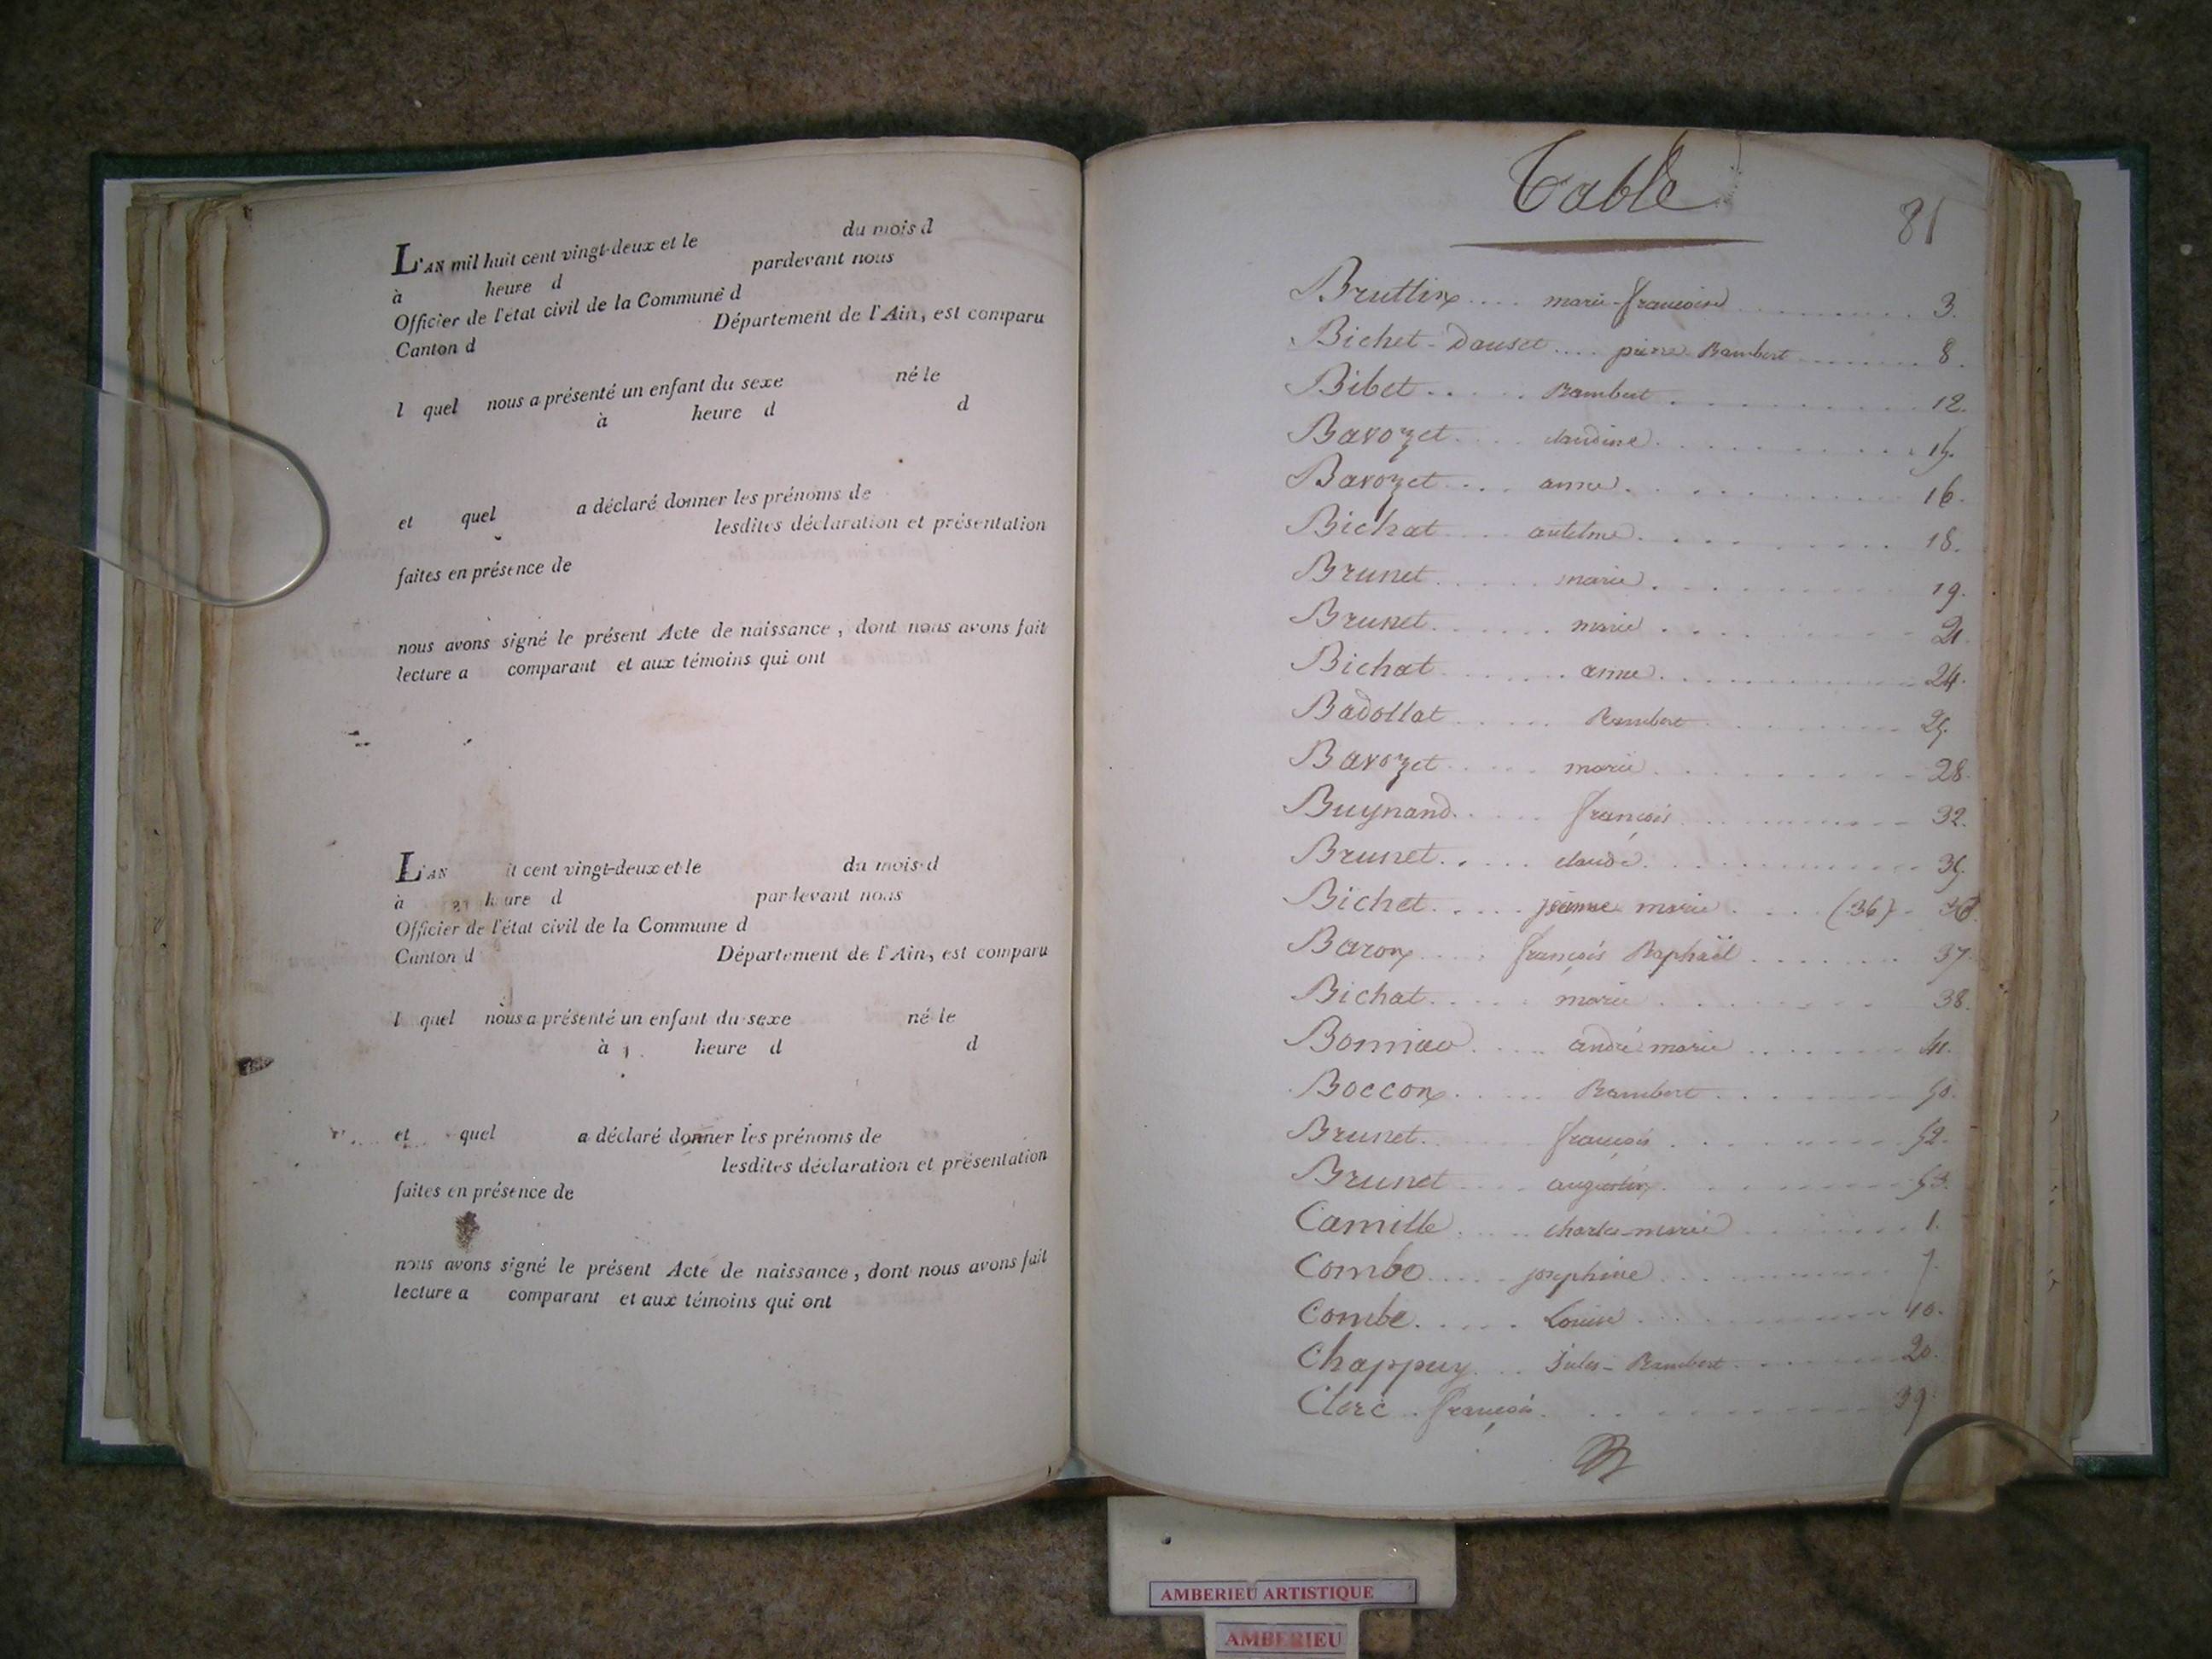 L'AN mil huit cent vingt-deux et le du mois d
à heure d pardevant nous
Officier de l'état civil de la Commune d
Canton d Département de l'Ain, est comparu
l quel nous a présenté un enfant du sexe né le
à heure d d
et quel a déclaré donner les prénoms de
lesdites déclaration et présentation
faites en présence de
nous avons signé le présent Acte de naissance, dont nous avons fait
lecture a comparant et aux témoins qui ont
L'AN it cent vingt-deux et le du mois d
à heure d pardevant nous
Officier de l'état civil de la Commune d
Canton d Département de l'Ain, est comparu
l quel nous a présenté un enfant du sexe né le
à heure d d
et quel a déclaré donner les prénoms de
lesdites déclaration et présentation
faites en présence de
nous avons signé le présent Acte de naissance, dont nous avons fait
lecture a comparant et aux témoins qui ont
Table
81
Bruttin .... marie-francoise ........ 3.
Bichet-Douset .... pierre Rambert ....... 8.
Bibet ..... Rambert ........ 12.
Bavozet .... claudine ........ 15.
Bavozet .... anne ........ 16.
Bichat .... antelme ........ 18.
Brunet ..... marie ........ 19.
Brunet ...... marie ........ 21.
Bichat ...... anne ........ 24.
Badollat ..... Rambert ........ 25.
Bavozet ..... marie ........ 28.
Buynand ..... françois ........ 32.
Brunet ..... claude ........ 35.
Bichet ..... marie .... (36)
Baron .... françois Raphaël ....... 37.
Bichat ..... marie ....... 38.
andré marie ....... 41.
Boccon ..... Rambert ....... 50.
Brunet ..... françois ....... 52.
Brunet .... augustin ....... 53.
Camille .... charles-marie ....... 1.
Combe .... josephine ....... 7.
Combe ..... Louise ....... 10.
Chappuy ... Jules-Rambert ....... 20.
Clerc .. françois ....... 39.
AMBERIEU ARTISTIQUE
AMBERIEU